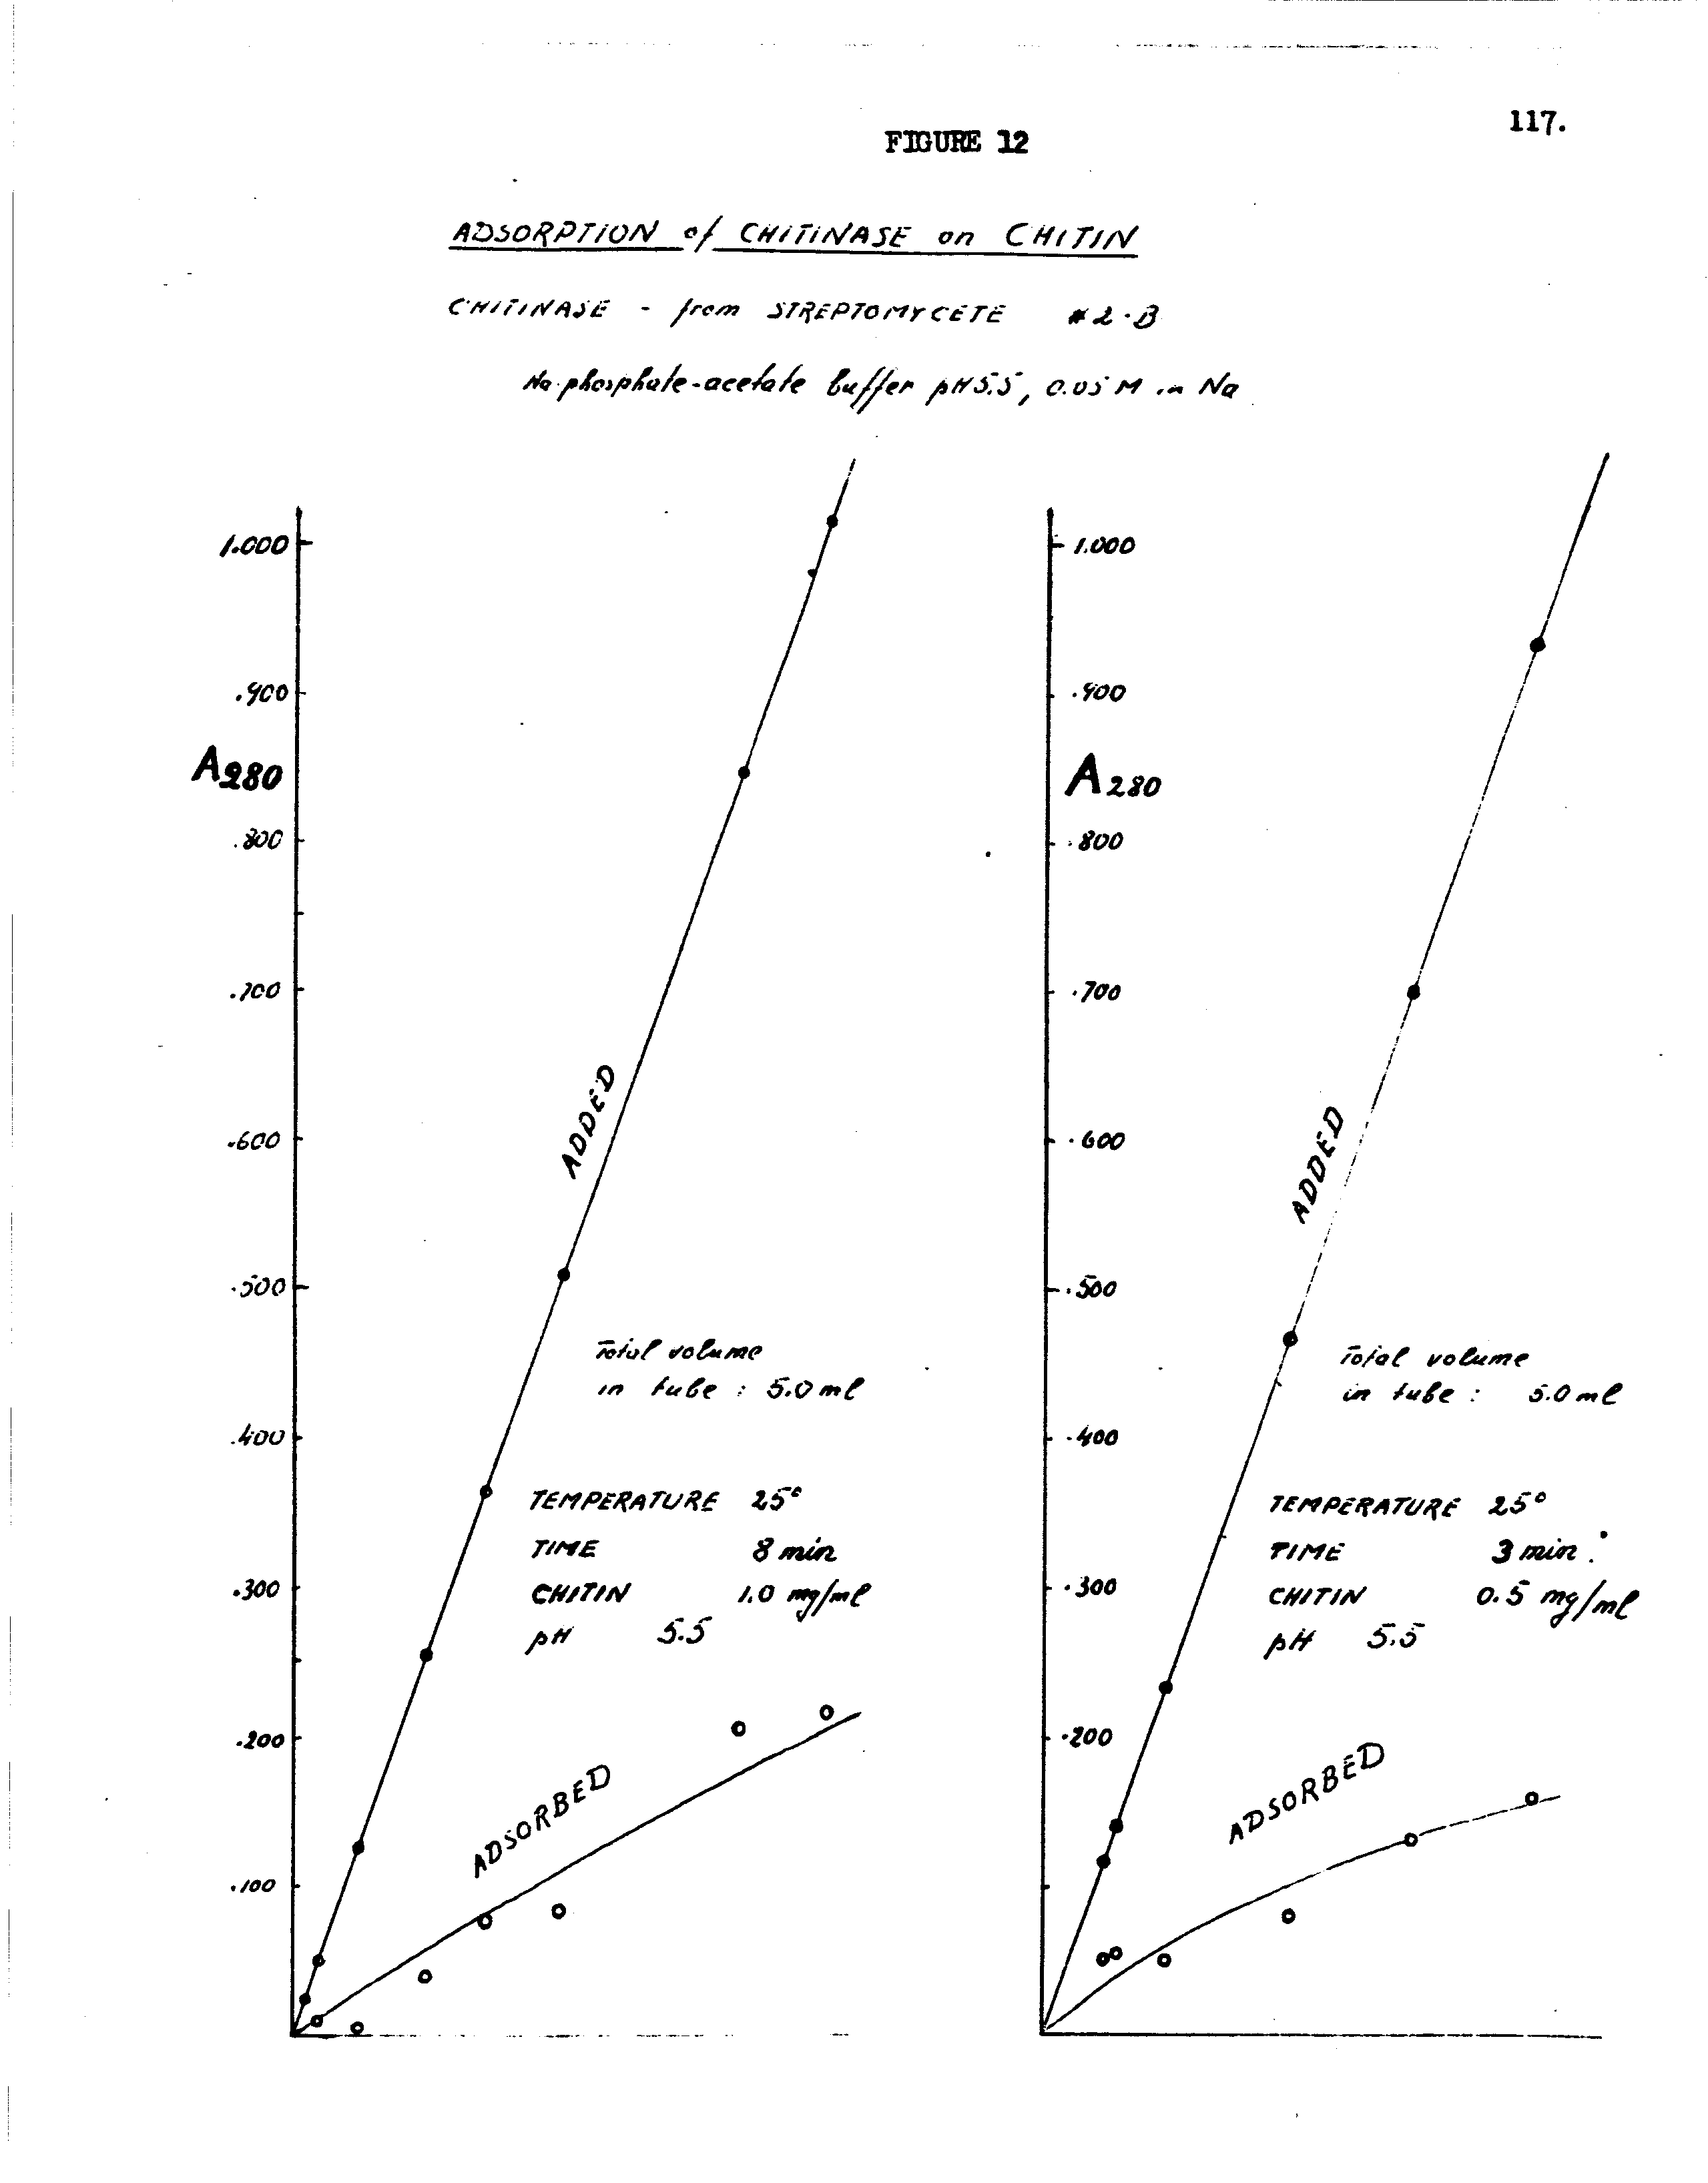 117.
FIGURE 12
ADSORPTION of CHITINASE on CHITIN
CHITINASE - from STREPTOMYCETE #2-B
Na-phosphate-acetate buffer pH 5.5, 0.05 M in Na
1.000
.900
A280
.800
.700
.600
.500
.400
.300
.200
.100
ADDED
Total volume
in tube : 5.0 ml
TEMPERATURE 25°
TIME 8 min
CHITIN 1.0 mg/ml
pH 5.5
ADSORBED
1.000
.900
A280
.800
.700
.600
.500
.400
.300
.200
ADDED
Total volume
in tube : 5.0 ml
TEMPERATURE 25°
TIME 3 min.
CHITIN 0.5 mg/ml
pH 5.5
ADSORBED